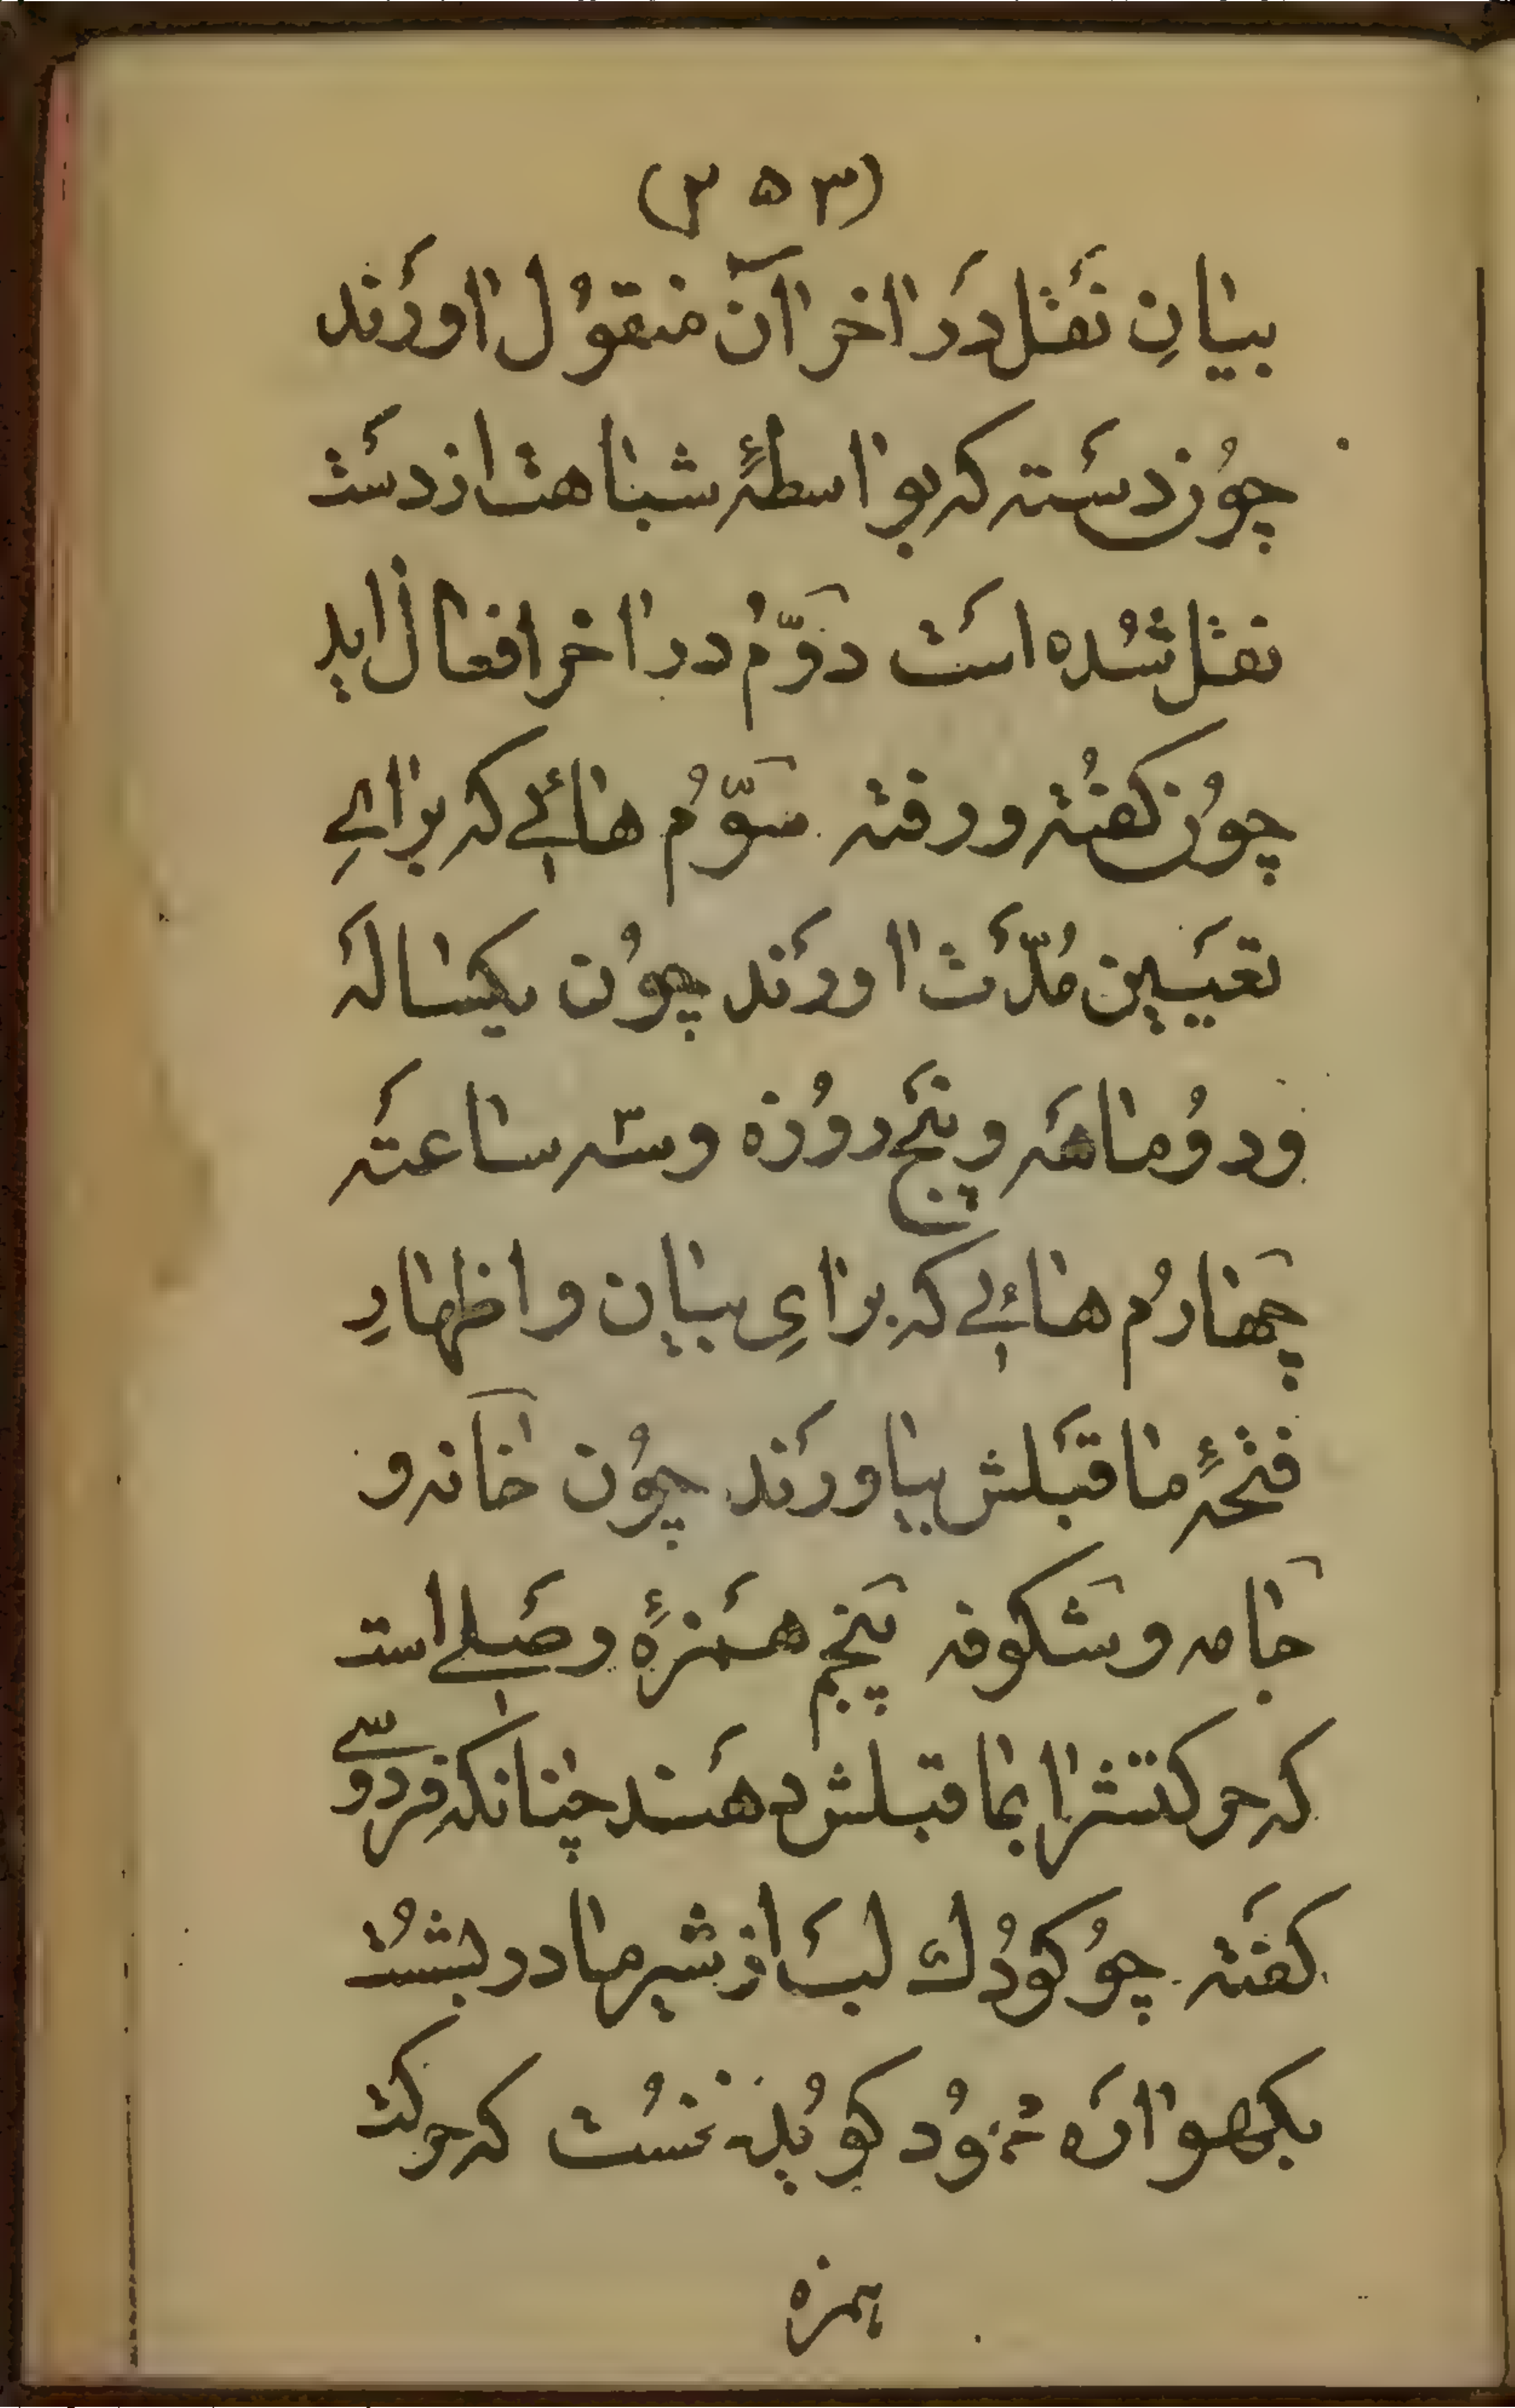 (۳۵۳)
بیانِ نَقل دَر ااخر اآن منقوُل ااورَند
چوُن دسَته که بواسطهٔ شباهت از دسَت
نقل شُده اسَت دَوّمُ در ااخر افعال اید
چوُن کفُته و رفته سَوّمُ هائے که برایِ
تعیَین مُدّتَ ااورَند چوُن یکساله
و دوُ ماهَه و پنَج روُزه و سه ساعَته
چَهارمُ هائے که برایِ بیان و اظهارِ
فتحهٔ ماقبَلش بیاورَند چوُن خَانه و
جَامه و شَکوفه پَنجم همَزهٔ وصَلے است
که حرکتشرا بماقبلش دهَند چنانکه فردوسے
کفَته چوُ کوُدُك لبَ از شیر مادر بشُست
بکهوارَه کویُد نخسُت که حرکت
همزه